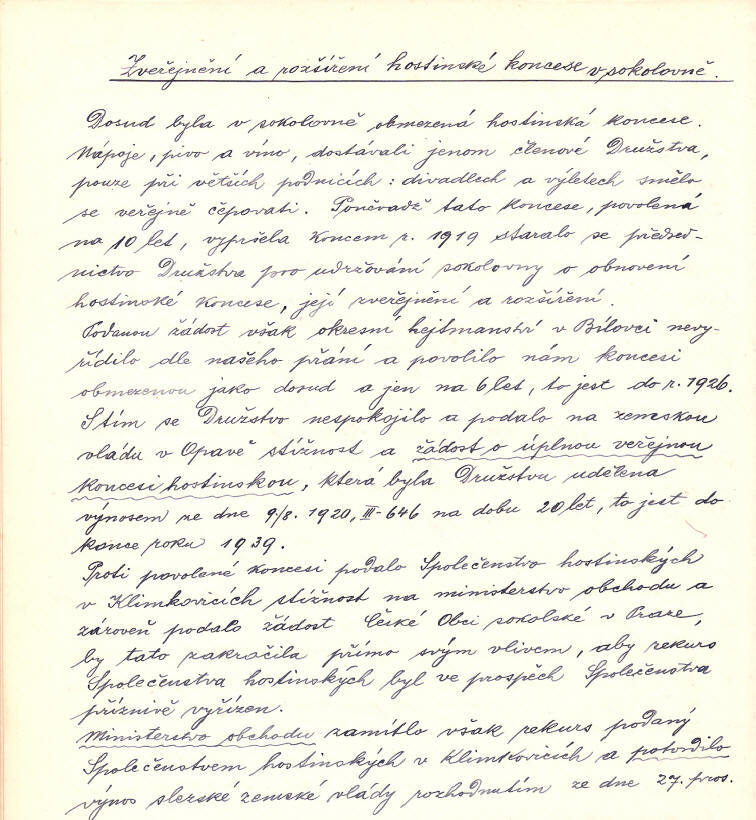 Zveřejnění a rozšíření hostinské koncese v sokolovně.
Dosud byla v sokolovně obmezená hostinská koncese.
Nápoje, pivo a víno, dostávali jenom členové Družstva,
pouze při větších podnicích: divadlech a výletech smělo
se veřejně čepovati. Poněvadž tato koncese, povolená
na 10 let, vypršela koncem r. 1919 staralo se předsed-
nictvo Družstva pro udržování sokolovny o obnovení
hostinské koncese, její zveřejnění a rozšíření.
Podanou žádost však okresní hejtmanství v Bílovci nevy-
řídilo dle našeho přání a povolilo nám koncesi
obmezenou jako dosud a jen na 6 let, to jest do r. 1926.
S tím se Družstvo nespokojilo a podalo na zemskou
vládu v Opavě stížnost a žádost o úplnou veřejnou
koncesi hostinskou, která byla Družstvu udělena
výnosem ze dne 9/8. 1920, III-646 na dobu 20 let, to jest do
konce roku 1939.
Proti povolené koncesi podalo Společenstvo hostinských
v Klimkovicích stížnost na ministerstvo obchodu a
zároveň podalo žádost České Obci sokolské v Praze,
by tato zakročila přímo svým vlivem, aby rekurs
Společenstva hostinských byl ve prospěch Společenstva
příznivě vyřízen.
Ministerstvo obchodu zamítlo však rekurs podaný
Společenstvem hostinských v Klimkovicích a potvrdilo
výnos slezské zemské vlády rozhodnutím ze dne 27. pros.